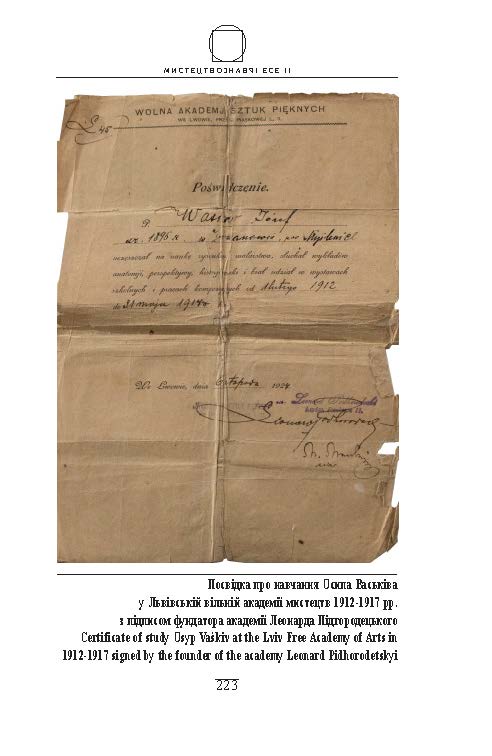 МИСТЕЦТВОЗНАВЧІ ЕСЕ II
WOLNA AKADEMJA SZTUK PIĘKNYCH
WE LWOWIE, PRZY UL. PIASKOWEJ L.
L 45
Poświadczenie.
P. Waśkow Józef
ur. 1896 r. w
uczęszczał na naukę rysunku, malarstwa, słuchał wykładów
anatomji, perspektywy, i brał udział w wystawach
szkolnych i pracach od 1 lutego 1912
do 31 maja 1917
We Lwowie, dnia listopada 1924
Посвідка про навчання Осипа Васьківа
у Львівській вільній академії мистецтв 1912-1917 рр.
з підписом фундатора академії Леонарда Підгородецького
Certificate of study Osyp Vaśkiv at the Lviv Free Academy of Arts in
1912-1917 signed by the founder of the academy Leonard Pidhorodetskyi
223